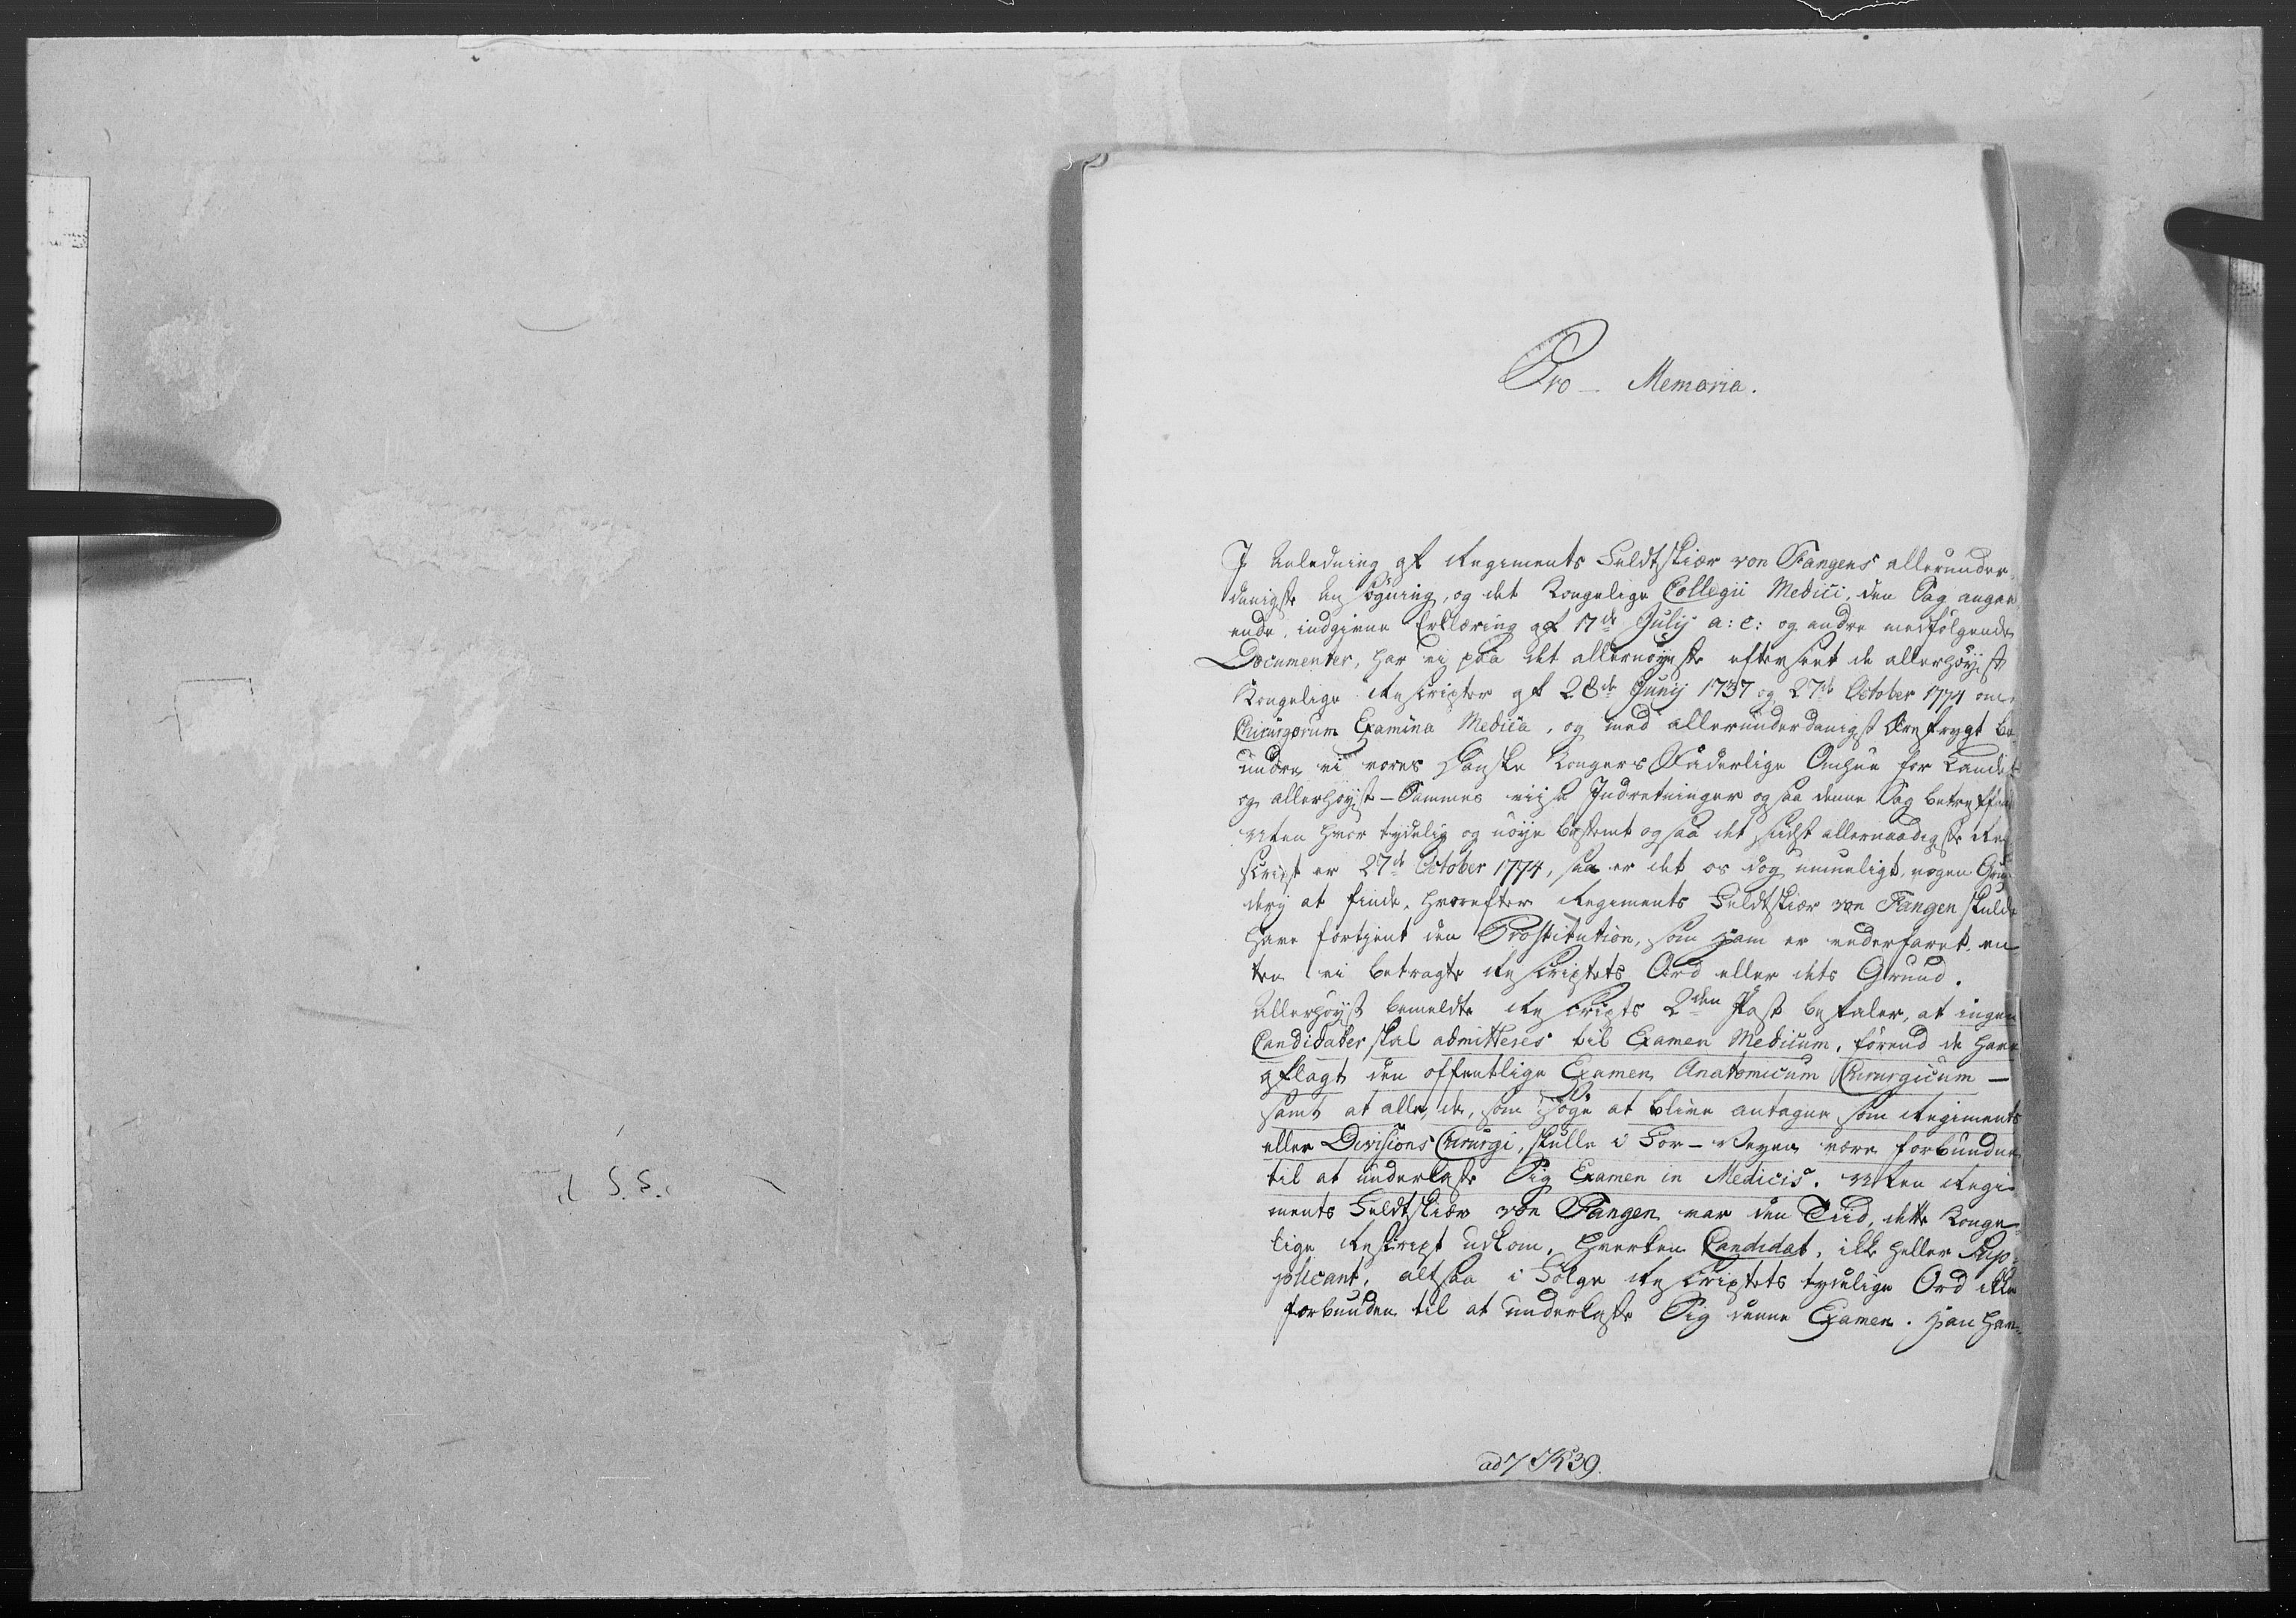 Pro - Memoria.
I Anledning af Regiments Feldtskiær von Fangens allerunder-
danigste Ansøgning, og det Kongelige Collegii Medici, den Sag angaa-
ende, indgivne Erklæring af 17de Julij a: c: og andre medfølgende
Documenter, har vi paa det allernøyeste efterseet de allerhøyst
Kongelige Rescripter af 28de Junij 1737 og 27de October 1774 om
Chirurgorum Examina Medica, og med allerunderdanigst Ærefrygt be-
undre vi vores Danske Kongers Faderlige Omhue for Landet
og allerhøyst-Sammes viise Indretninger ogsaa denne Sag betreffende
Men hvor tydelig og nøye bestemt ogsaa det sidst allernaadigste Re-
script er 27de October 1774, saa er det os dog umueligt, nogen Grun-
derij at finde, hvorefter Regiments Feldtskiær von Fangen skulde
have fortient den Prostitution, som ham er vederfaret, en-
ten vi betragte Rescriptets Ord eller dets Grund.
Allerhøyst bemeldte Rescripts 2den Post befaler, at ingen
Candidater skal admitteres til Examen Medicum, førend de have
aflagt den offentlige Examen Anatomicum Chirurgicum -
samt at alle de, som søge at blive antagne som Regiments
eller Divisions Chirurgi, skulle i For-Veyen være forbundne
til at underkaste Sig Examen in Medicis. Men Regi-
ments Feldtskiær von Fangen var den Tiid, dette Konge-
lige Rescript udkom, hverken Candidat, ikke heller Sup-
plicant, altsaa i Følge Rescriptets tydelige Ord ikke
forbunden til at underkaste Sig denne Examen. Han hav-
ad 7 SK 39.
S. S.